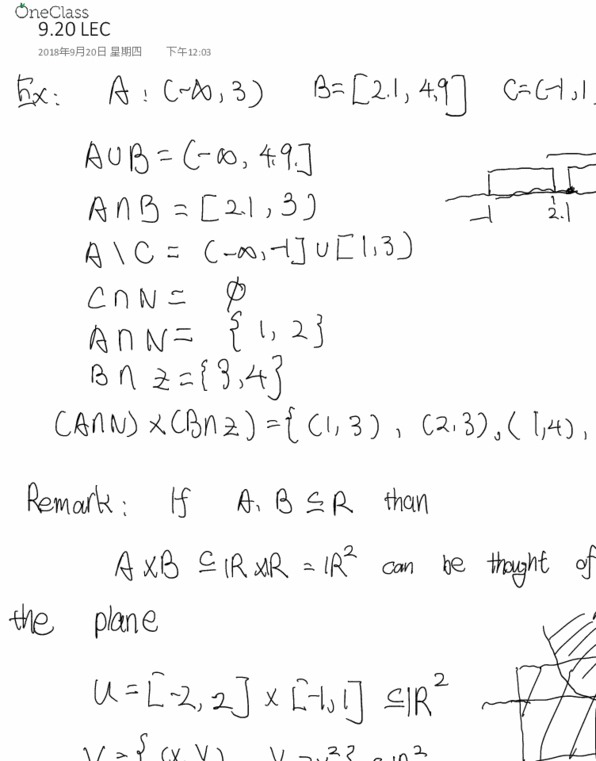 OneClass
9.20 LEC
2018年9月20日 星期四 下午12:03
Ex: A: (-∞, 3) B=[2.1, 4.9] C=(-1,1
A∪B = (-∞, 4.9.]
A∩B = [2.1, 3)
A\C = (-∞,-1]∪[1,3)
C∩N = ∅
-1 2.1
A∩N= {1, 2}
B∩Z={3,4}
(A∩N)×(B∩Z)={(1,3), (2,3), (1,4),
Remark: If A, B ⊆ R than
A×B ⊆ IR×IR = IR² can be thought of
the plane
U=[-2, 2] × [-1,1] ⊆ IR²